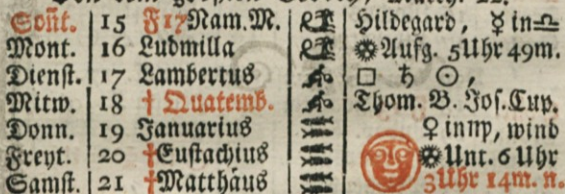 Soñt. 15 F17 Nam. M. Hildegard, ☿ in ♎
Mont. 16 Ludmilla Aufg. 5Uhr 49m.
Dienst. 17 Lambertus □ ♄ ☉,
Mitw. 18 † Quatemb. Thom. B. Jos. Cup.
Donn. 19 Januarius ♀ in ♍, wind
Freyt. 20 †Eustachius Unt. 6 Uhr
Samst. 21 †Matthäus 3Uhr 14m. n.